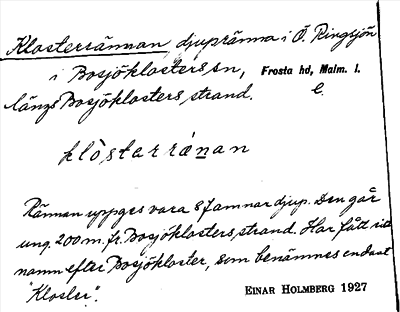 Klosterrännan, djupränna i Ö. Ringsjön
i Bosjöklosters sn, Frosta hd, Malm. l.
längs Bosjöklosters strand. C.
klòstarränan
Rännan uppges vara 8 famnar djup. Den går
ung. 200 m. fr. Bosjöklosters strand. Har fått sitt
namn efter Bosjökloster, som benämnes endast
"Kloster".
EINAR HOLMBERG 1927